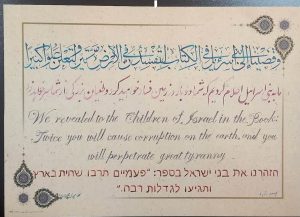 وقضينا إلى بني إسرائيل في الكتاب لتفسدن في الأرض مرتين ولتعلن علوا كبيرا
We revealed to the Children of Israel in the Book:
Twice you will cause corruption on the earth, and you
will perpetrate great tyranny.
הזהרנו את בני ישראל בספר: "פעמיים תרבו שחית בארץ
ותגיעו לגדלות רבה."